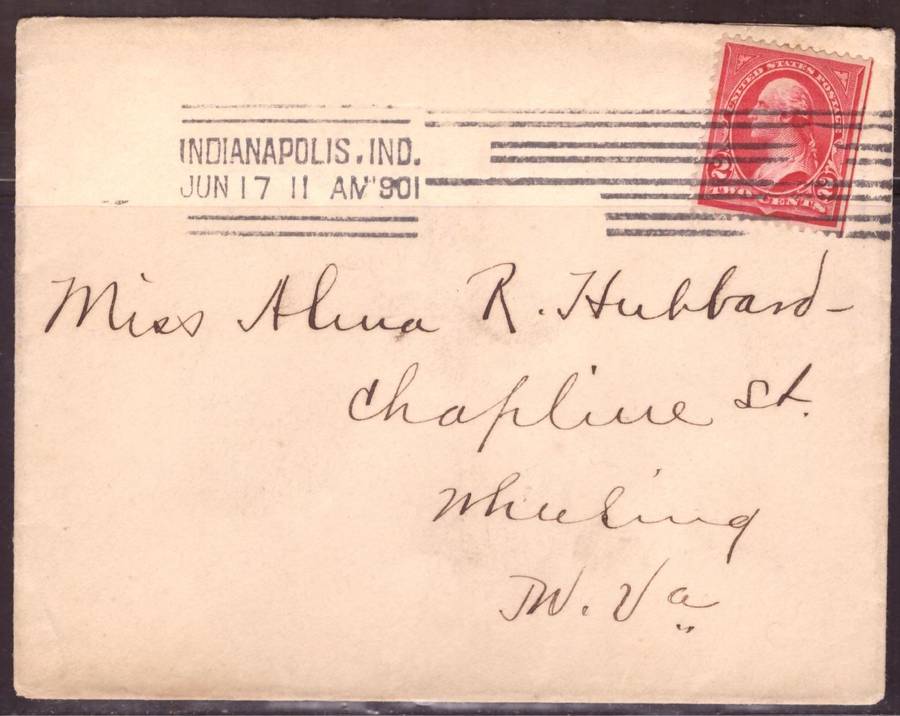 UNITED STATES POSTAGE
INDIANAPOLIS, IND.
JUN 17 11 AM '901
2 2
TWO CENTS
Miss Alma R. Hubbard
Chapline St.
Wheeling
W. Va